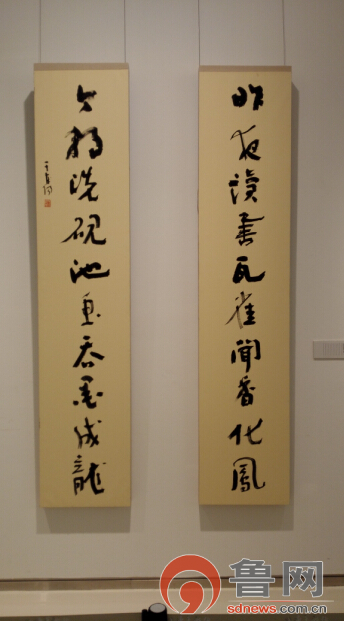 昨夜讀書瓦雀聞香化鳳
今朝洗硯池魚吞墨成龍
鲁网
sdnews.com.cn